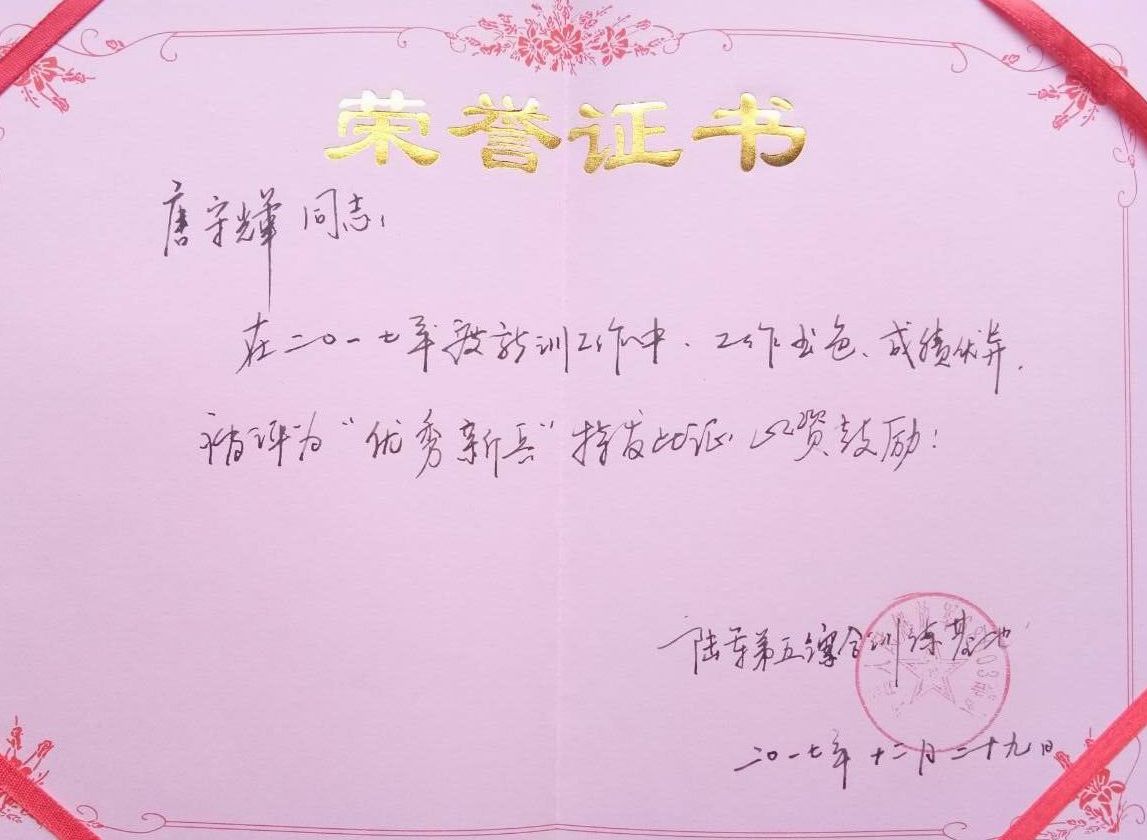 荣誉证书
唐守輝 同志：
在二〇一七年度新训工作中、工作出色、成绩优异、
被评为“优秀新兵”特发此证 以资鼓励！
陆军第五综合训练基地
二〇一七年 十二月 二十九日